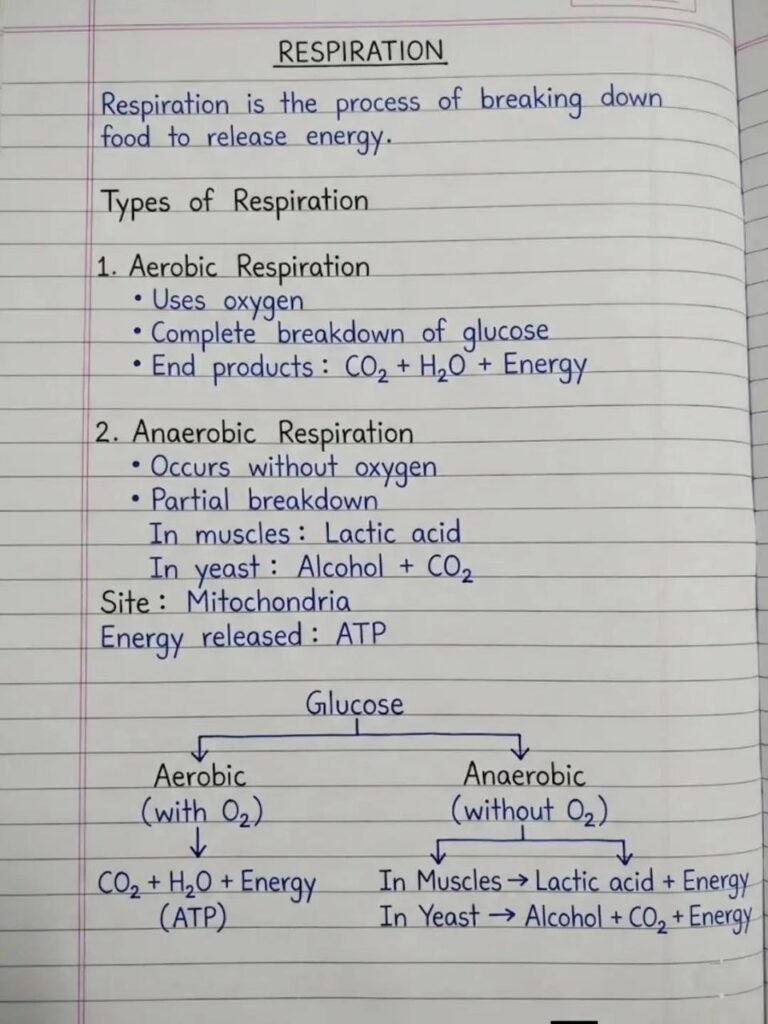 RESPIRATION
Respiration is the process of breaking down
food to release energy.
Types of Respiration
1. Aerobic Respiration
• Uses oxygen
• Complete breakdown of glucose
• End products : CO₂ + H₂O + Energy
2. Anaerobic Respiration
• Occurs without oxygen
• Partial breakdown
In muscles : Lactic acid
In yeast : Alcohol + CO₂
Site : Mitochondria
Energy released : ATP
Glucose
Aerobic Anaerobic
(with O₂) (without O₂)
CO₂ + H₂O + Energy In Muscles → Lactic acid + Energy
(ATP) In Yeast → Alcohol + CO₂ + Energy